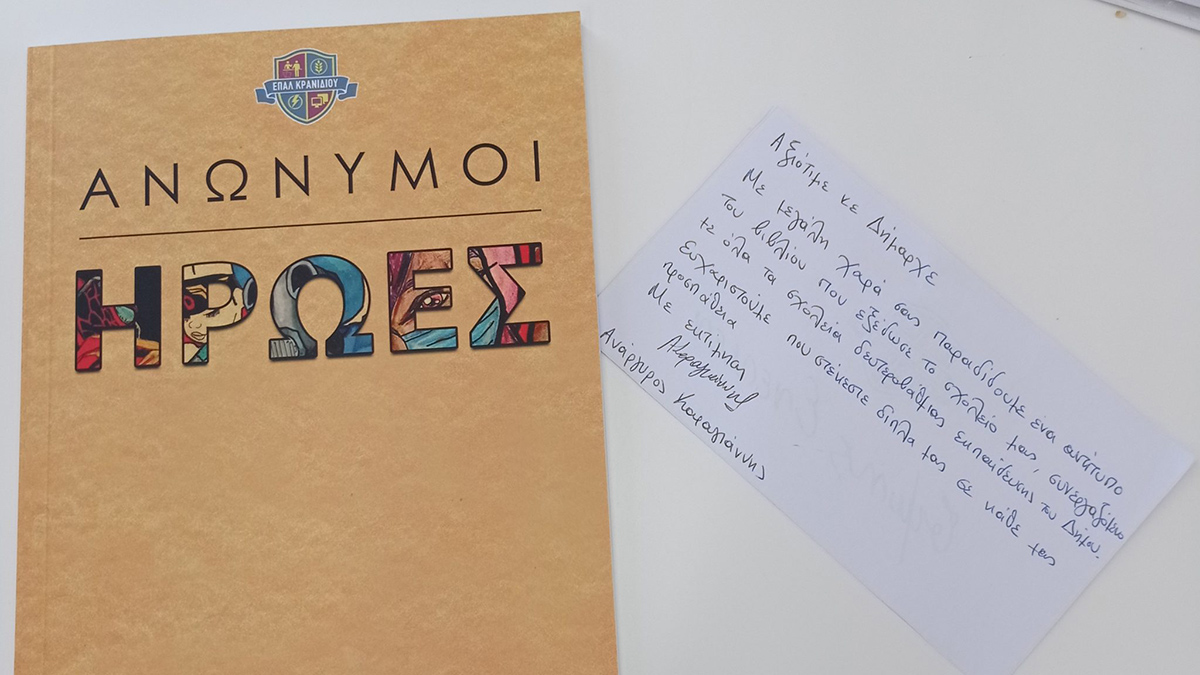 ΕΠΑΛ ΚΡΑΝΙΔΙΟΥ
ΑΝΩΝΥΜΟΙ
ΗΡΩΕΣ
Αξιότιμε κε Δήμαρχε
Με μεγάλη χαρά σας παραδίδουμε ένα αντίτυπο
του βιβλίου που εξέδωσε το σχολείο μας, συνεργαζόμενο
με όλα τα σχολεία δευτεροβάθμιας εκπαίδευσης του Δήμου.
Ευχαριστούμε που στέκεστε δίπλα μας σε κάθε μας
προσπάθεια
Με εκτίμηση
Ανάργυρος Καραγιάννης